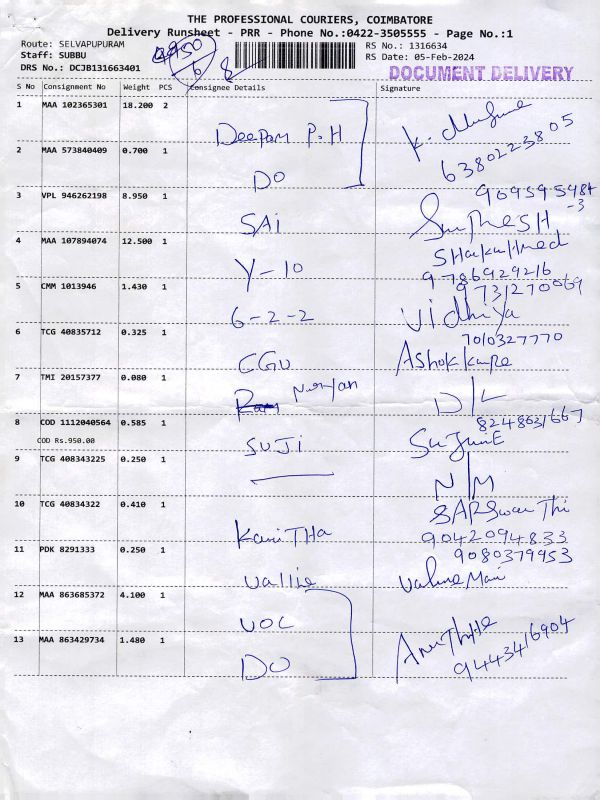 THE PROFESSIONAL COURIERS, COIMBATORE
Delivery Runsheet - PRR - Phone No.:0422-3505555 - Page No.:1
Route: SELVAPUPURAM
RS No.: 1316634
Staff: SUBBU
RS Date: 05-Feb-2024
DRS No.: DCJB131663401
DOCUMENT DELIVERY
S No Consignment No Weight PCS Consignee Details Signature
1 MAA 102365301 18.200 2
Deepam P.H
6380223805
2 MAA 573840409 0.700 1
DO
3 VPL 946262198 8.950 1
SAi
4 MAA 107894074 12.500 1
Y-10
9786929216
5 CMM 1013946 1.430 1
9731270069
6-2-2 Vidhiya
6 TCG 40835712 0.325 1
7010327770
CGU
7 TMI 20157377 0.080 1
D/L
8 COD 1112040564 0.585 1
8248631667
COD Rs.950.00
SUJi
9 TCG 408343225 0.250 1
N/M
10 TCG 40834322 0.410 1
KaviTHa 9042094833
11 PDK 8291333 0.250 1
9080379953
Vallie
12 MAA 863685372 4.100 1
VOC
13 MAA 863429734 1.480 1
DO 9443416904